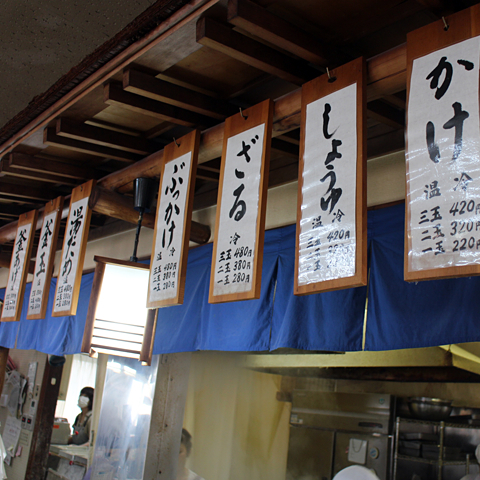 かけ
温 冷
三玉 420円
二玉 320円
一玉 220円
しょうゆ
温 冷
三玉 480円
二玉 380円
一玉 280円
ざる
冷
三玉 480円
二玉 380円
一玉 280円
ぶっかけ
温 冷
三玉 480円
二玉 380円
一玉 280円
湯だめ
釜玉
釜あげ